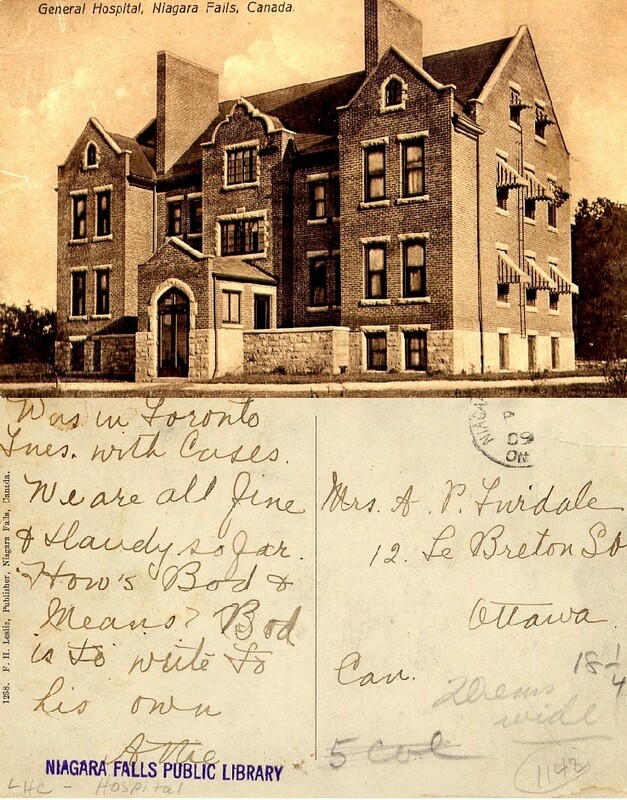 General Hospital, Niagara Falls, Canada.
Was in Toronto
Tues. with Cases.
We are all fine
& dandy so far.
How's Bod &
Means? Bod
is to write to
his own
NIAGARA FALLS PUBLIC LIBRARY
LHC - Hospital
1258. F. H. Leslie, Publisher, Niagara Falls, Canada.
NIAGARA
09
ON
Mrs. A. P.
12. Le Breton St
Ottawa.
Can.
18 1/4
wide
5 col
1142